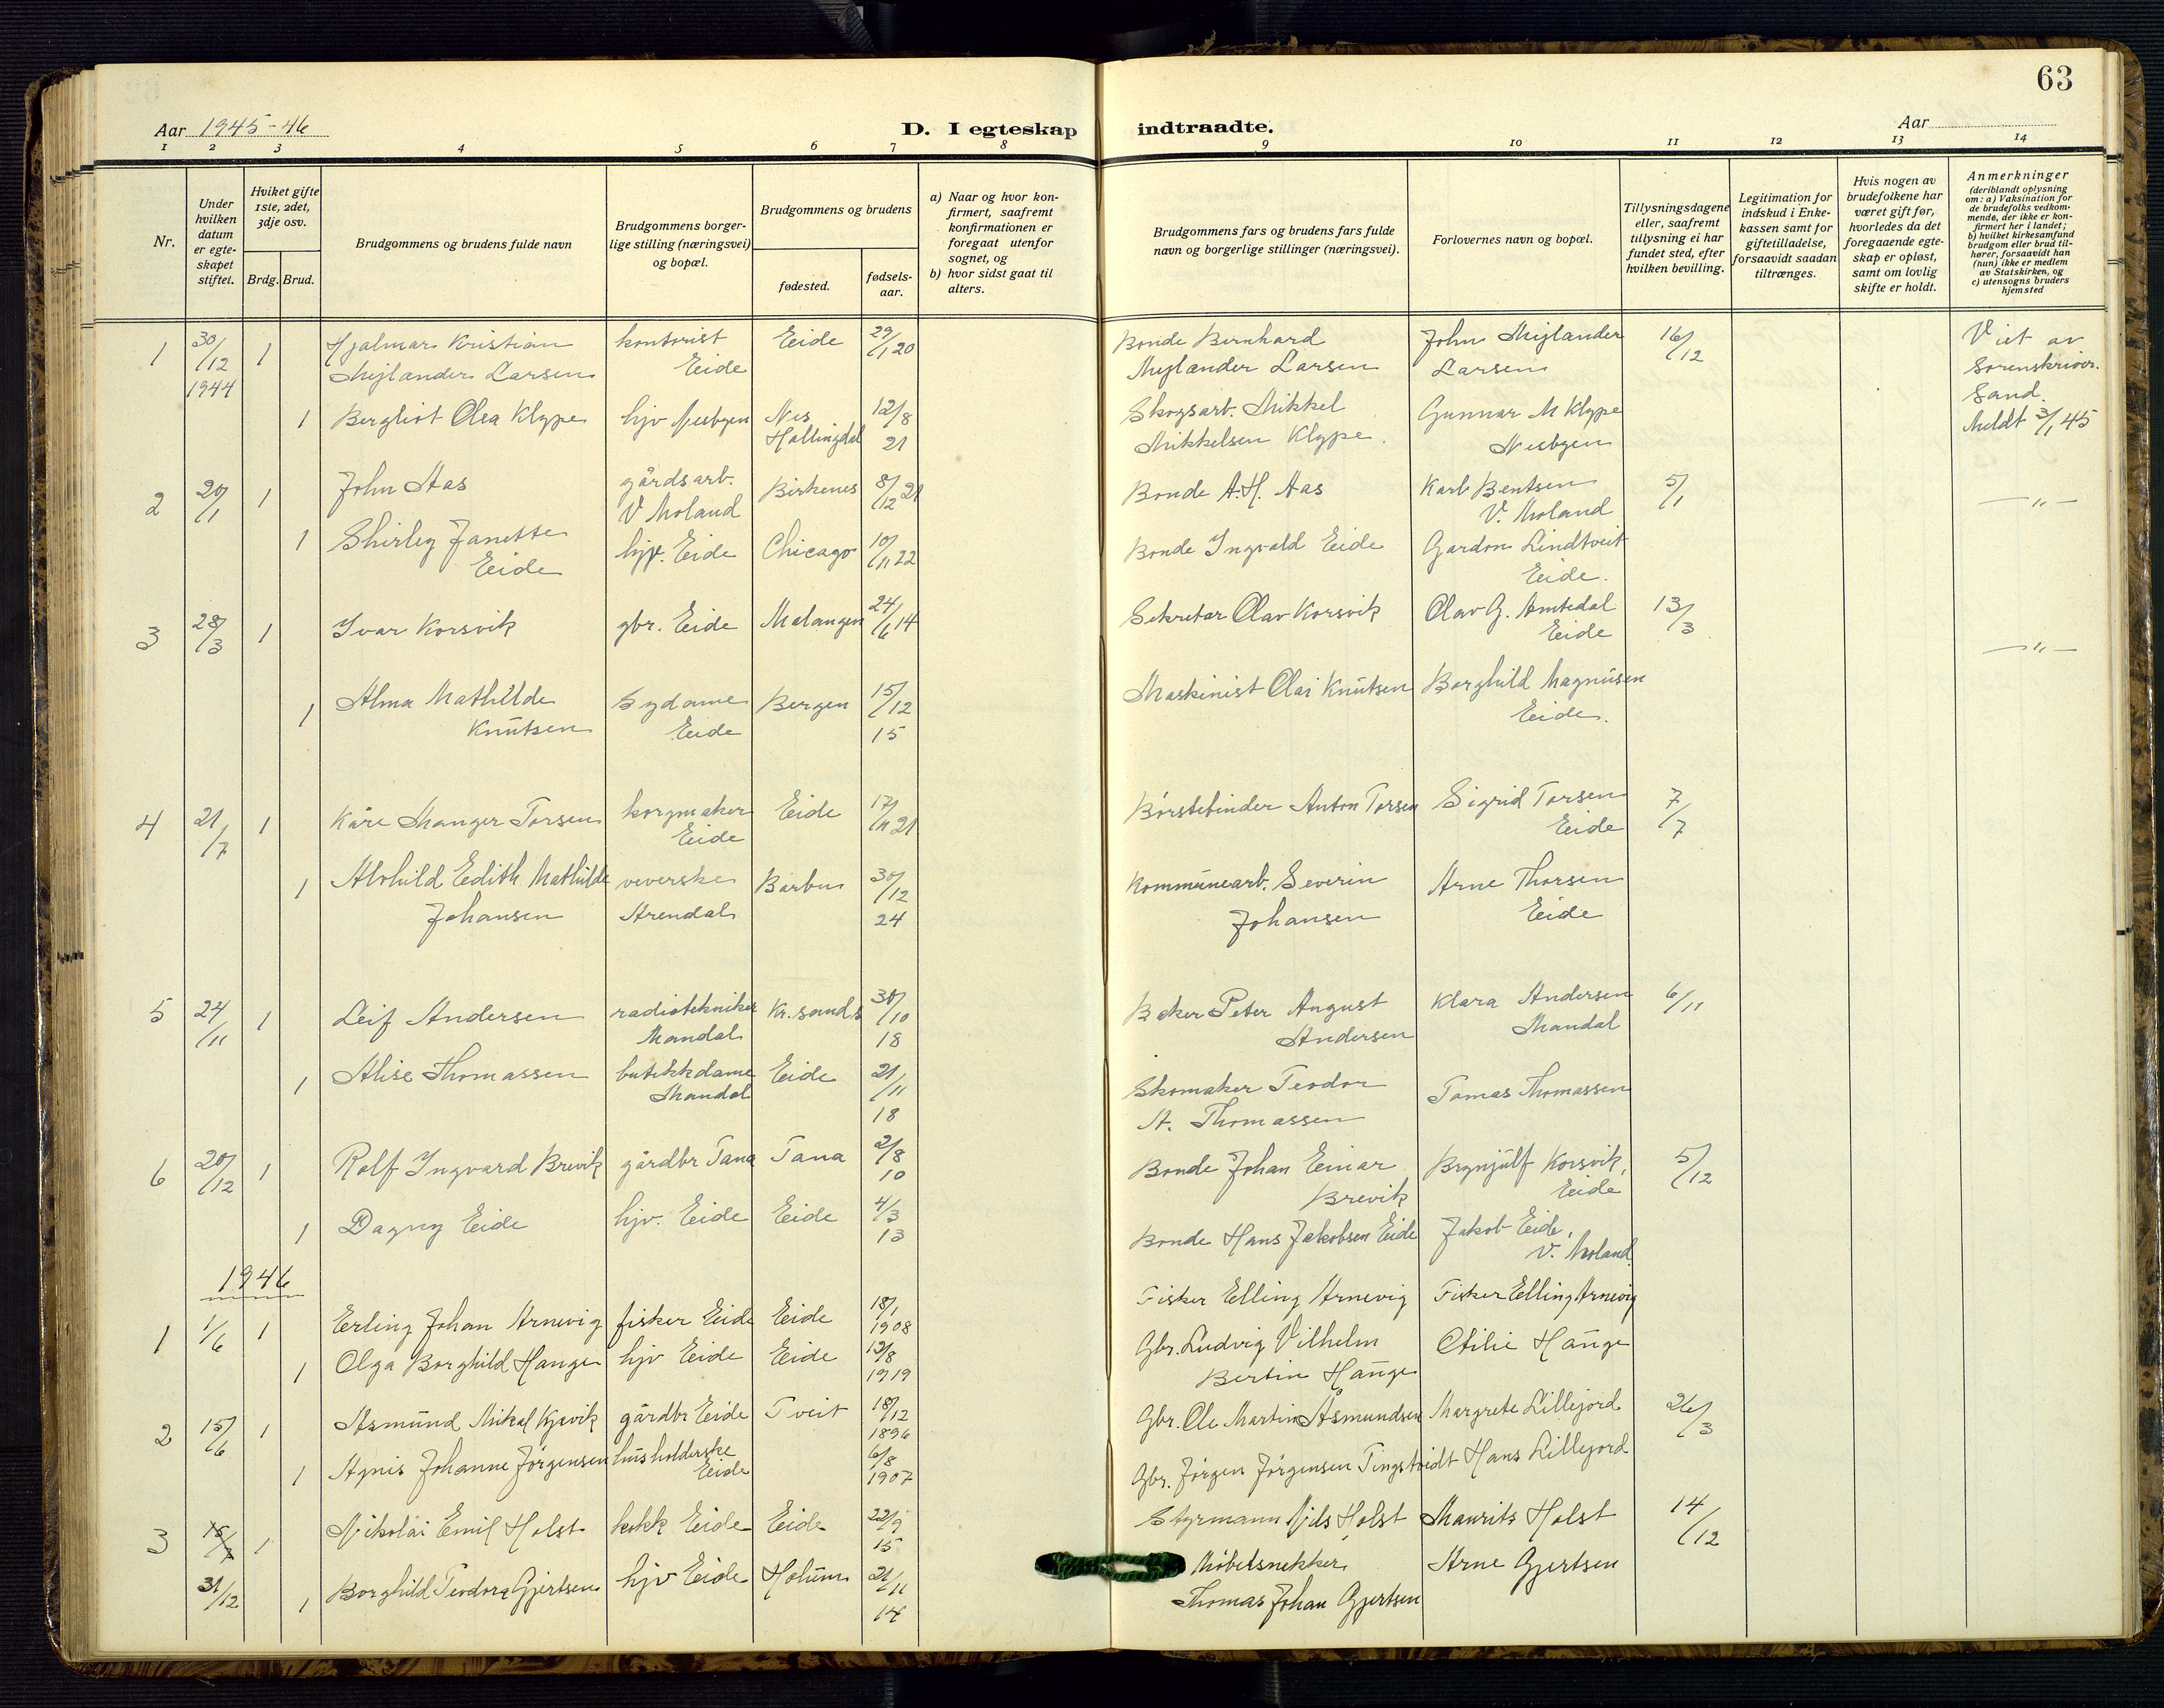 63
Aar 1945-46
D. I egteskap indtraadte.
Aar
1 2 3 4 5 6 7 8 9 10 11 12 13 14
Nr.
Under hvilken datum er egte-skapet stiftet.
Hviket gifte 1ste, 2det, 3dje osv.
Brdg. Brud.
Brudgommens og brudens fulde navn
Brudgommens borger-lige stilling (næringsvei) og bopæl.
Brudgommens og brudens
fødested.
fødsels-aar.
a) Naar og hvor kon-firmert, saafremt konfirmationen er foregaat utenfor sognet, og
b) hvor sidst gaat til alters.
Brudgommens fars og brudens fars fulde navn og borgerlige stillinger (næringsvei).
Forlovernes navn og bopæl.
Tillysningsdagene eller, saafremt tillysning ei har fundet sted, efter hvilken bevilling.
Legitimation for indskud i Enke-kassen samt for giftetilladelse, forsaavidt saadan tiltrænges.
Hvis nogen av brudefolkene har været gift før, hvorledes da det foregaaende egte-skap er opløst, samt om lovlig skifte er holdt.
Anmerkninger
(deriblandt oplysning om: a) Vaksination for de brudefolks vedkom-mende, der ikke er kon-firmert her i landet; b) hvilket kirkesamfund brudgom eller brud til-hører, forsaavidt han (hun) ikke er medlem av Statskirken, og c) utensogns bruders hjemsted
1 30/12 1944 1 Hjalmar Kristian Mejlænder Larsen kontorist Eide Eide 29/1 20 Bonde Bernhard Mejlænder Larsen John Mejlænder Larsen 16/12 Viet av Sorenskriver. Sand. Meldt 3/1 45
1 Bergliot Olea Klype hjv Nesbyen Nes Hallingdal 12/8 21 Skogsarb. Mikkel Mikkelsen Klype. Gunnar M Klype Nesbyen
2 20/1 1 John Aas gårdsarb. V Moland Birkenes 8/12 21 Bonde A.H. Aas Karl Bentsen V. Moland 5/1 — " —
1 Shirley Janette Eide hjv. Eide Chicago 10/11 22 Bonde Ingvald Eide Gardon Lindtveit Eide.
3 28/3 1 Ivar Korsvik gbr. Eide Malangen 24/6 14 Sekretær Olav Korsvik Olav G. Amtedal Eide 13/3 — " —
1 Alma Mathilde Knutsen Sydame Eide Bergen 15/12 15 Maskinist Olai Knutsen Borghild Magnusen Eide.
4 21/7 1 Kåre Manger Torsen korgmaker Eide Eide 17/11 21 Børstebinder Anton Torsen Sigrid Torsen Eide 7/7
1 Alvhild Edith Mathilde Johansen veverske Arendal Barbu 30/12 24 Kommunearb. Severin Johansen Arne Thorsen Eide
5 24/11 1 Leif Andersen radiotekniker Mandal Kr.sands 30/10 18 Baker Peter August Andersen Klara Andersen Mandal 6/11
1 Alise Thomassen butikkdame Mandal Eide 21/11 18 Skomaker Teodor A. Thomassen Tomas Thomassen
6 20/12 1 Rolf Ingvard Brevik gårdbr Tana Tana 2/8 10 Bonde Johan Einar Brevik Brynjulf Korsvik, Eide 5/12
1 Dagny Eide hjv. Eide Eide 4/3 13 Bonde Hans Jakobsen Eide Jakob Eide, V. Moland
1946
1 1/6 1 Erling Johan Arnevig fisker Eide Eide 18/1 1908 Fisker Elling Arnevig Fisker Elling Arnevig
1 Olga Borghild Hauge hjv Eide Eide 12/8 1919 Gbr. Ludvig Vilhelm Bertin Hauge Otilie Hauge
2 15/6 1 Asmund Mikal Kjevik gårdbr Eide Tveit 18/12 1896 Gbr. Ole Martin Åsmundsen Margrete Lillejord 26/3
1 Agnis Johanne Jörgensen husholderske Eide 6/8 1907 Gbr. Jörgen Jörgensen Tingstveidt Hans Lillejord
3 31/12 1 Nikolai Emil Holst kokk Eide Eide 22/9 15 Styrmann Nils Holst Maurits Holst 14/12
1 Borghild Teodora Gjertsen hjv Eide Holum 21/11 14 Möbelsnekker Thomas Johan Gjertsen Arne Gjertsen